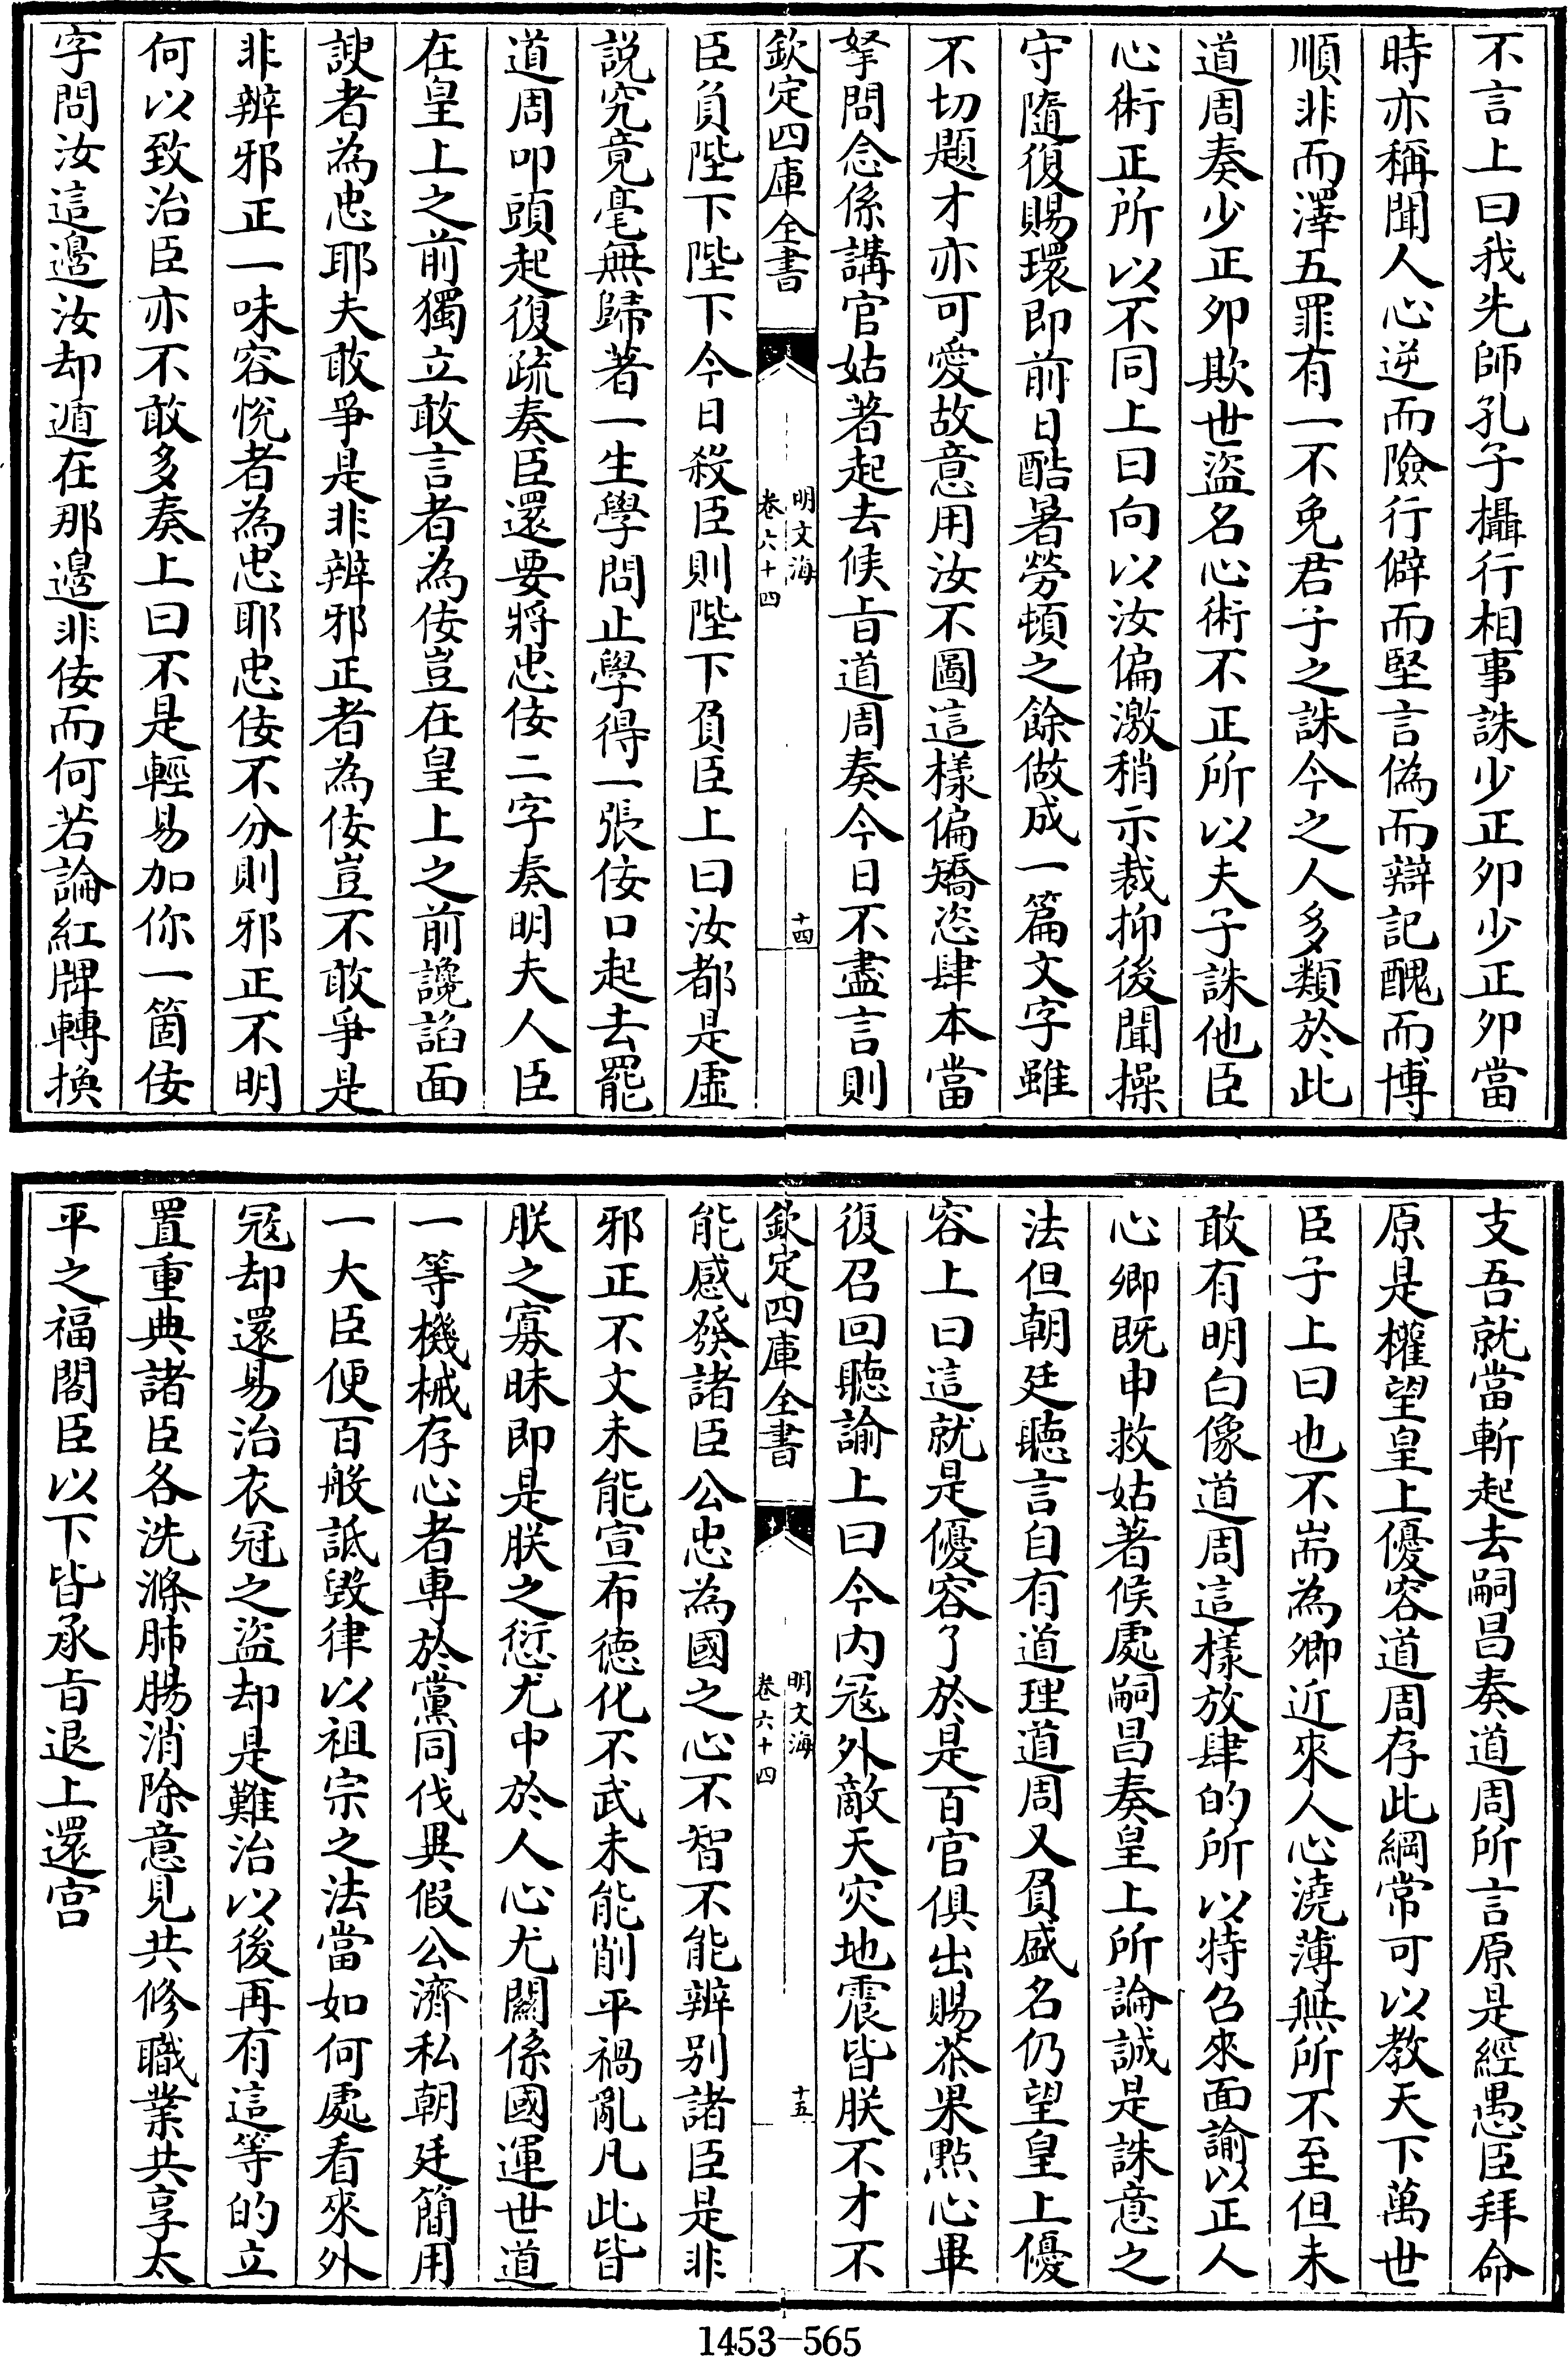 不言上曰我先師孔子攝行相事誅少正卯少正卯當
時亦稱聞人心逆而險行僻而堅言偽而辯記醜而博
順非而澤五罪有一不免君子之誅今之人多類於此
道周奏少正卯欺世盜名心術不正所以夫子誅他臣
心術正所以不同上曰向以汝偏激稍示裁抑後聞操
守隨復賜環即前日酷暑勞頓之餘做成一篇文字雖
不切題才亦可愛故意用汝不圖這樣偏矯恣肆本當
拏問念係講官姑著起去候㫖道周奏今日不盡言則
欽定四庫全書
明文海
卷六十四
十四
臣負陛下陛下今日殺臣則陛下負臣上曰汝都是虛
説究竟毫無歸著一生學問止學得一張佞口起去罷
道周叩頭起復疏奏臣還要將忠佞二字奏明夫人臣
在皇上之前獨立敢言者為佞豈在皇上之前讒諂面
諛者為忠耶夫敢爭是非辨邪正者為佞豈不敢爭是
非辨邪正一味容悅者為忠耶忠佞不分則邪正不明
何以致治臣亦不敢多奏上曰不是輕易加你一箇佞
字問汝這邊汝却遁在那邊非佞而何若論紅牌轉換
支吾就當斬起去嗣昌奏道周所言原是經愚臣拜命
原是權望皇上優容道周存此綱常可以教天下萬世
臣子上曰也不耑為卿近來人心澆薄無所不至但未
敢有明白像道周這樣放肆的所以特召來面諭以正人
心卿既申救姑著候處嗣昌奏皇上所論誠是誅意之
法但朝廷聽言自有道理道周又負盛名仍望皇上優
容上曰這就是優容了於是百官俱出賜茶果點心畢
復召回聽諭上曰今内冦外敵天灾地震皆朕不才不
欽定四庫全書
明文海
卷六十四
十五
能感發諸臣公忠為國之心不智不能辨别諸臣是非
邪正不文未能宣布德化不武未能削平禍亂凡此皆
朕之寡昧即是朕之愆尤中於人心尤闗係國運世道
一等機械存心者專於黨同伐異假公濟私朝廷簡用
一大臣便百般詆毀律以祖宗之法當如何處看來外
冦却還易治衣冠之盜却是難治以後再有這等的立
置重典諸臣各洗滌肺腸消除意見共修職業共享太
平之福閣臣以下皆承㫖退上還宫
1453—565